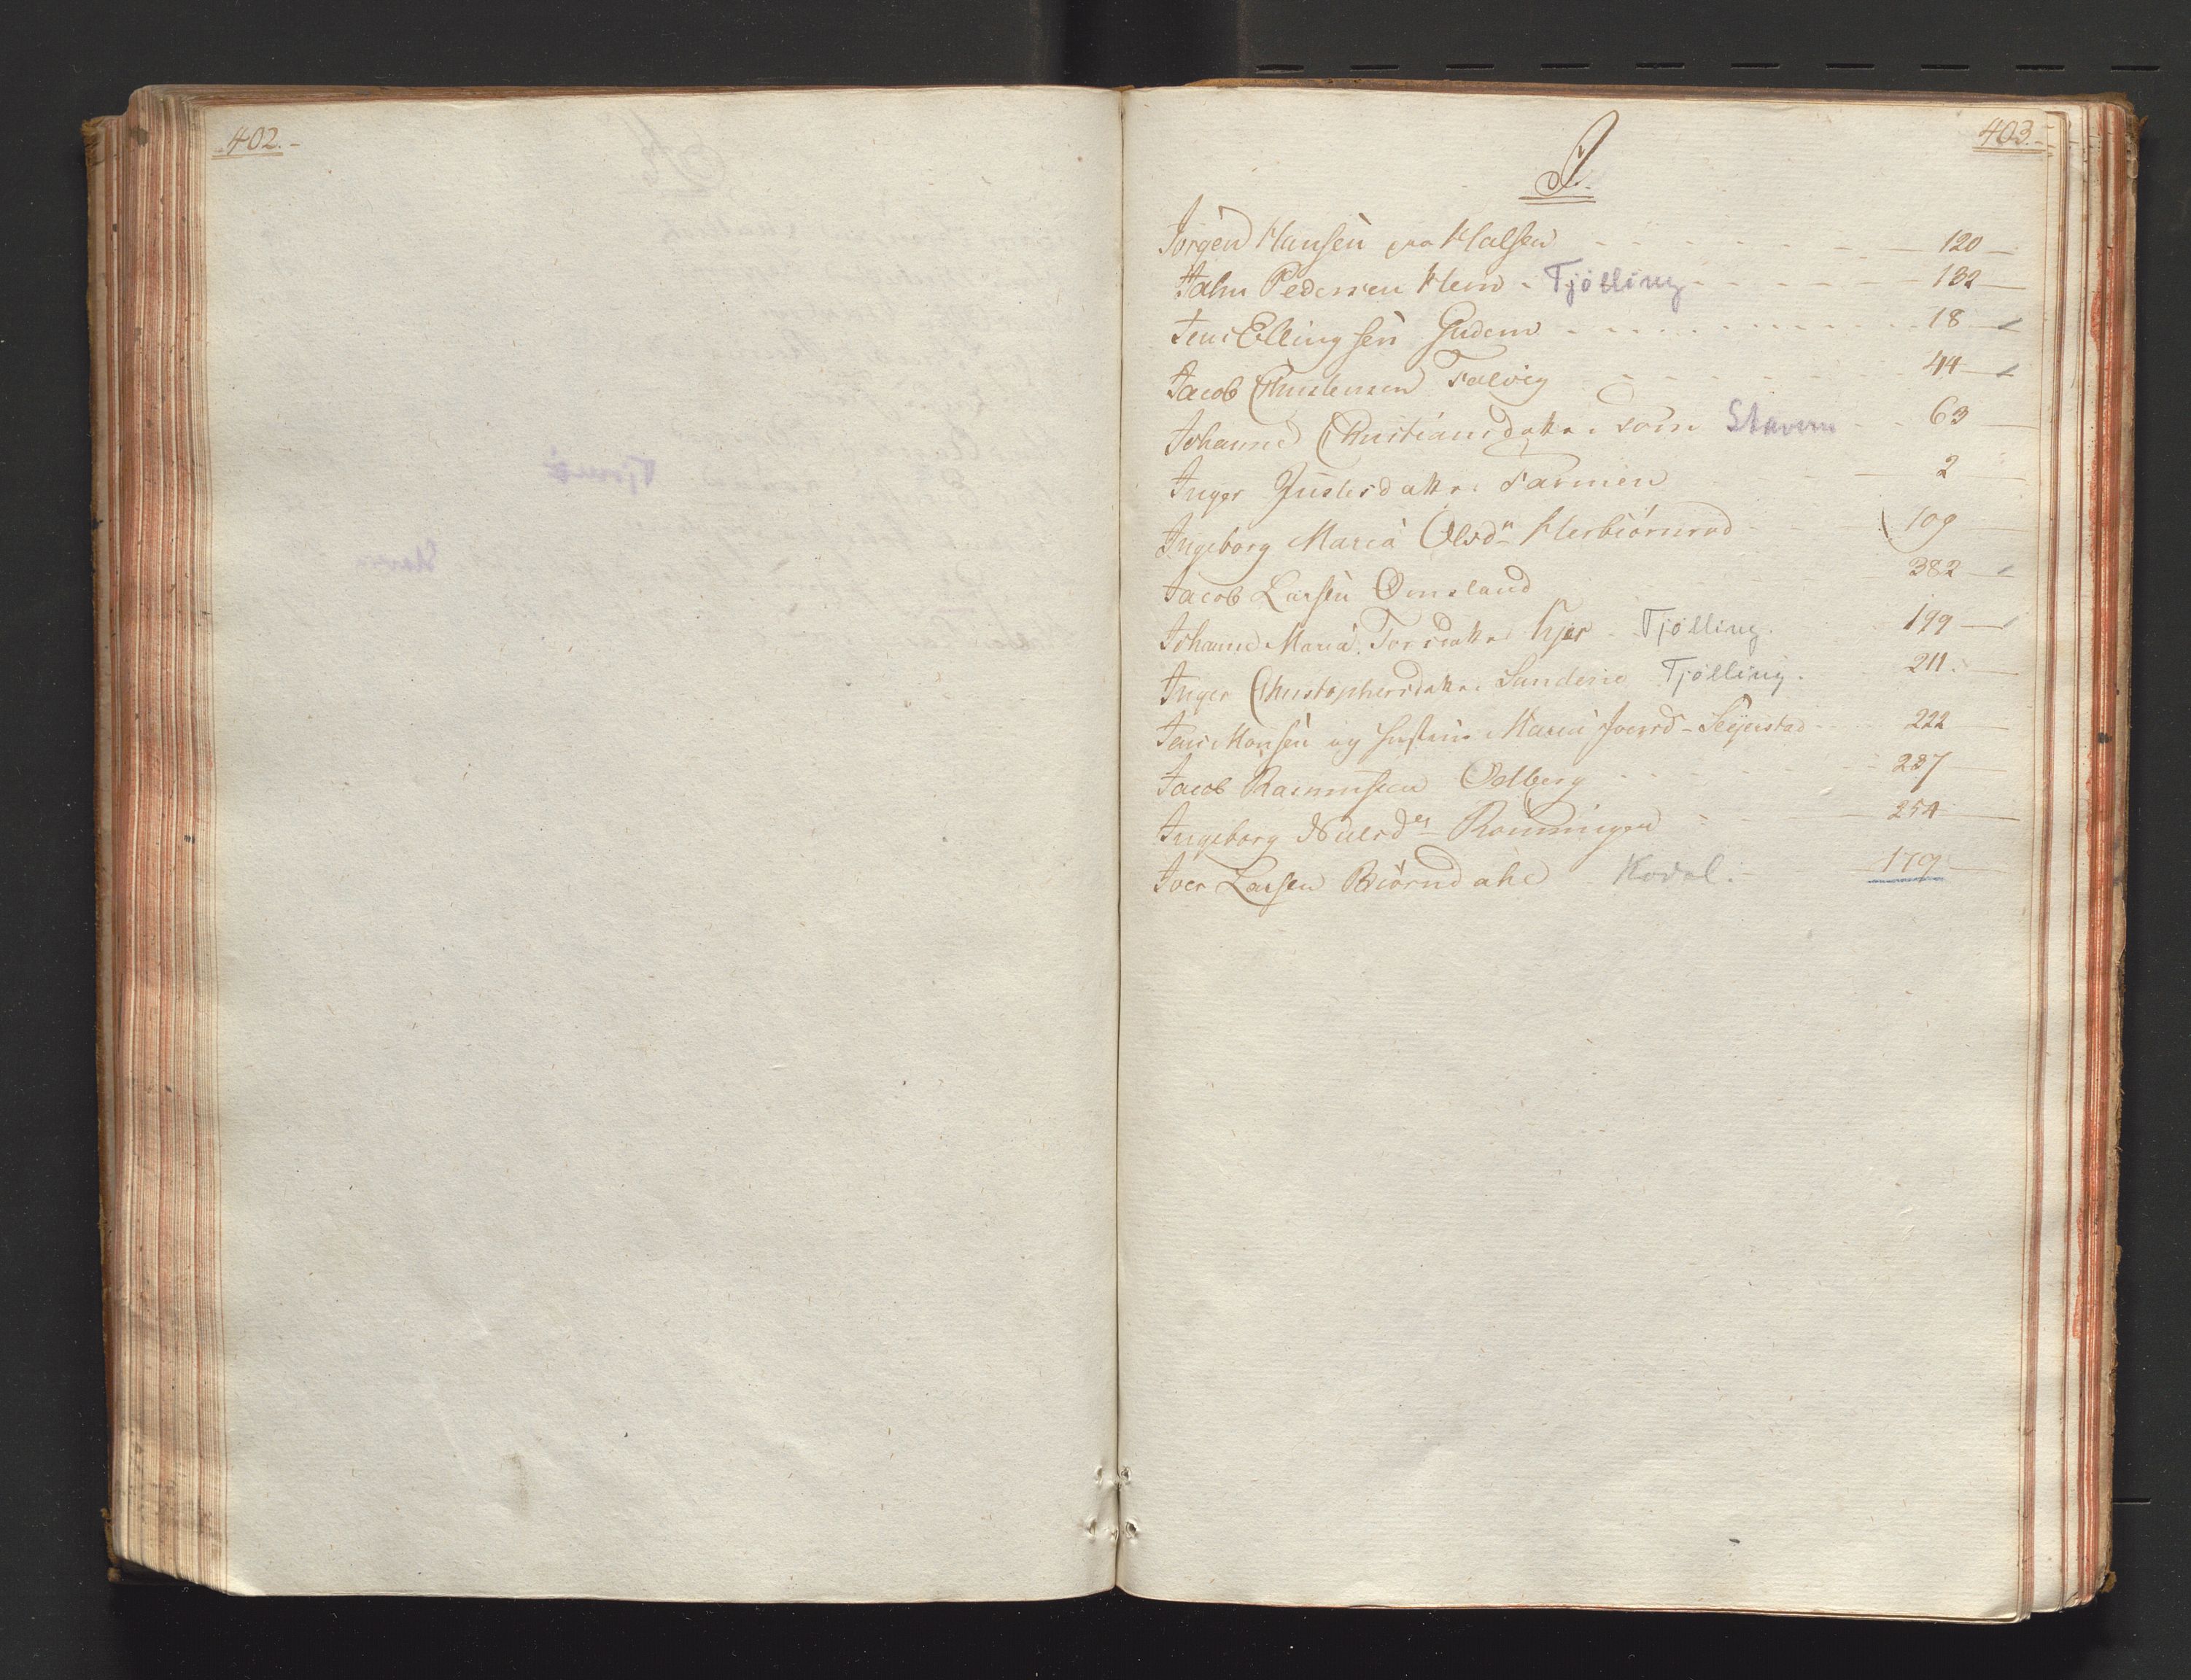 402.
403.
J.
Jørgen Hansen paa Halsen 120
Jahn Pedersen Hem - Tjölling 182
Jens Ellingsen Gudem 18
Jacob Christensen Talvig 44
Johanne Christiansdatter Stavern 63
Inger Justesdatter Farmen 2
Ingeborg Maria Olsdr Herbiörnrød 109
Jacob Larsen Omsland 382
Johanne Maria Torsdatter Tjölling. 199
Inger Christophersdatter Sundene Tjölling. 211.
Jens Monsen og Hustrue Maria Joensd - Seijerstad 222
Jacob Rasmussen Odberg 237
Ingeborg Nielsdr Rønningen 254
Iver Larsen Biørndahl Kodal. 179
Tjømø
Stavern